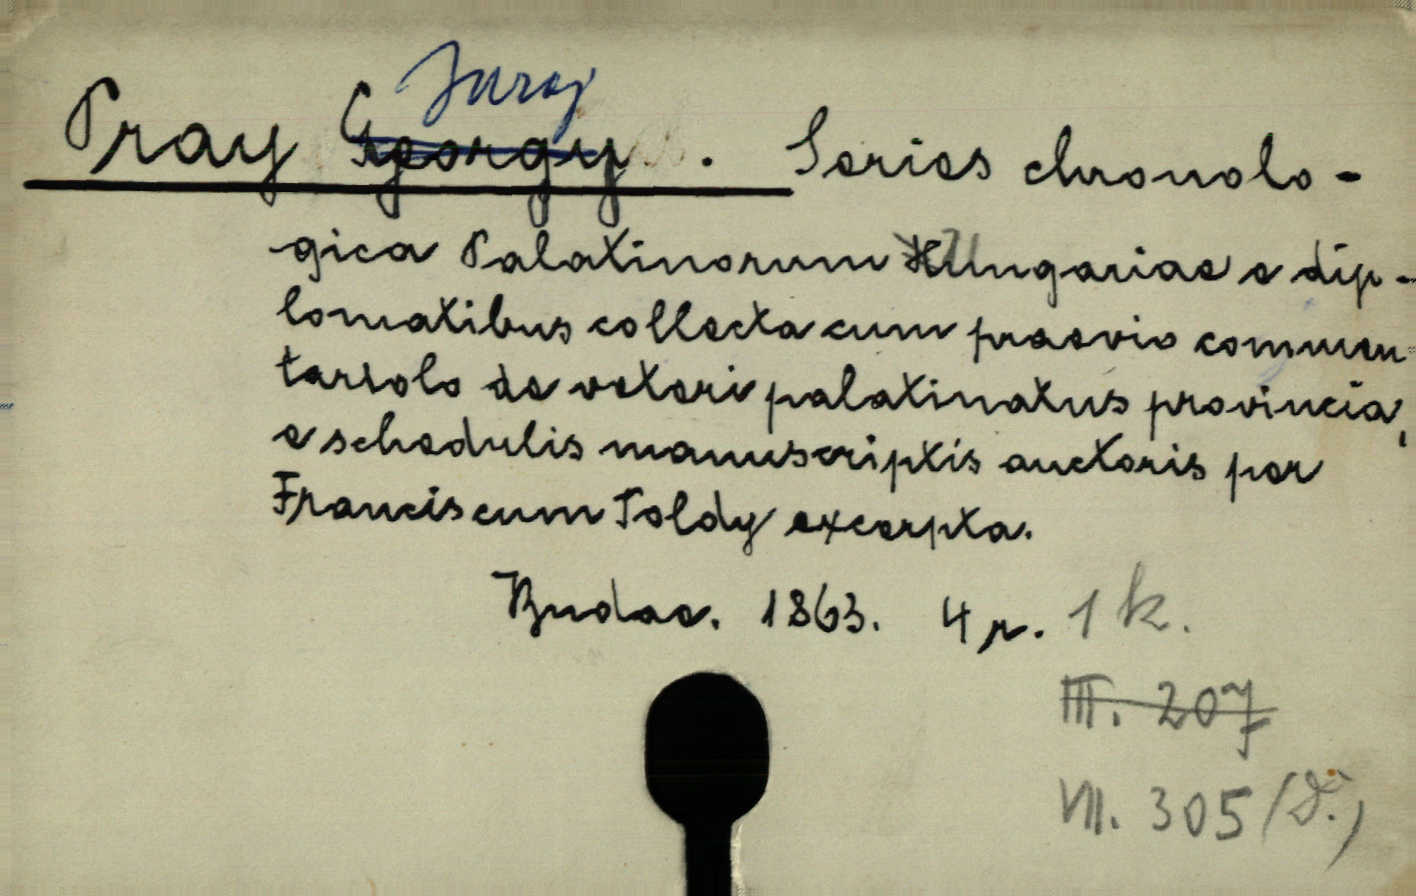 Juraj
Pray Gyorgy. Series chronolo-
gica Palatinorum Hungariae e dip-
lomatibus collecta cum praevio commen
tariolo de veteri palatinatus provincia,
e schedulis manuscriptis auctoris per
Franciscum Toldy excerpta.
Budae. 1863. 4 r. 1 k.
III. 207
VII. 305 (D.)